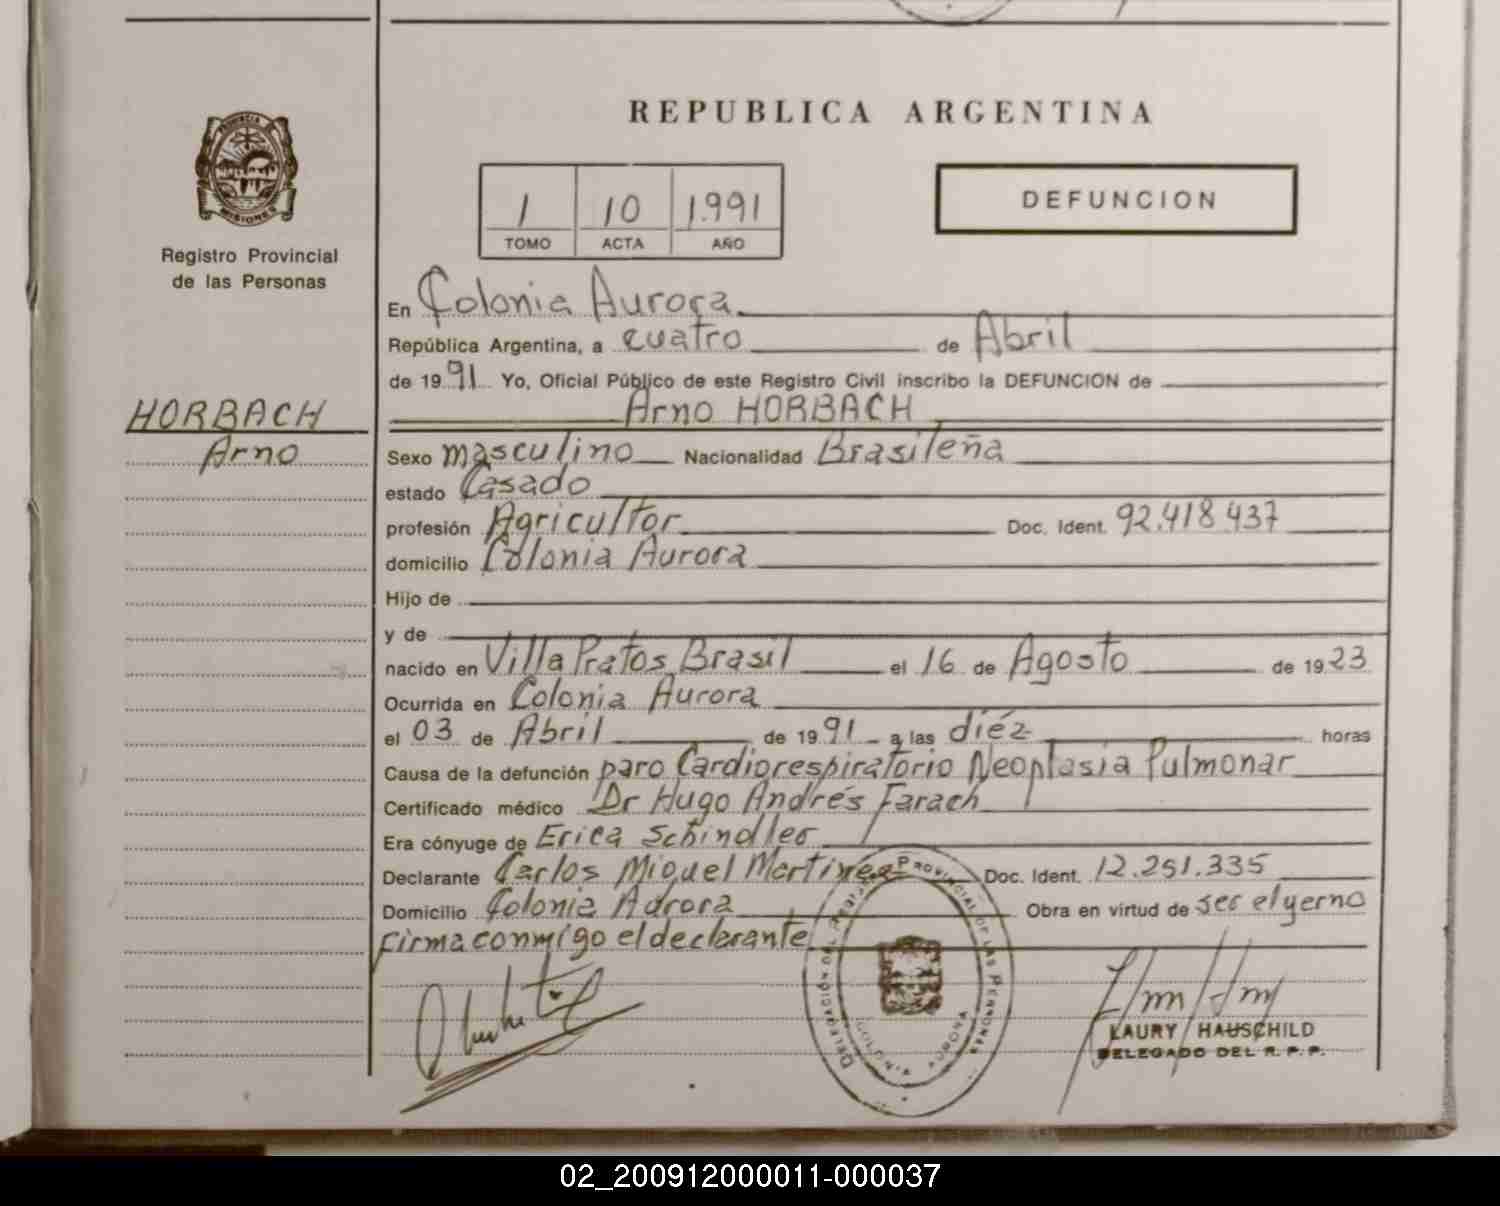 REPUBLICA ARGENTINA
PROVINCIA DE
MISIONES
Registro Provincial
de las Personas
1 10 1.991
TOMO ACTA AÑO
DEFUNCION
En Colonia Aurora
República Argentina, a cuatro de Abril
de 1991 Yo, Oficial Público de este Registro Civil inscribo la DEFUNCION de
Arno HORBACH
HORBACH
Arno
Sexo masculino Nacionalidad Brasileña
estado Casado
profesión Agricultor Doc. Ident. 92.418.437
domicilio Colonia Aurora
Hijo de
y de
nacido en Villa Pratos Brasil el 16 de Agosto de 1923
Ocurrida en Colonia Aurora
el 03 de Abril de 1991 a las diéz horas
Causa de la defunción paro Cardiorespiratorio Neoplasia Pulmonar
Certificado médico Dr Hugo Andrés Farach
Era cónyuge de Erica Schindler
Declarante Carlos Miguel Martinez Doc. Ident. 12.251.335
Domicilio Colonia Adrora Obra en virtud de ser el yerno
firma conmigo el declarante
DELEGACIÓN DEL REGISTRO PROVINCIAL DE LAS PERSONAS
COLONIA AURORA
LAURY HAUSCHILD
DELEGADO DEL R. P. P.
02_200912000011-000037